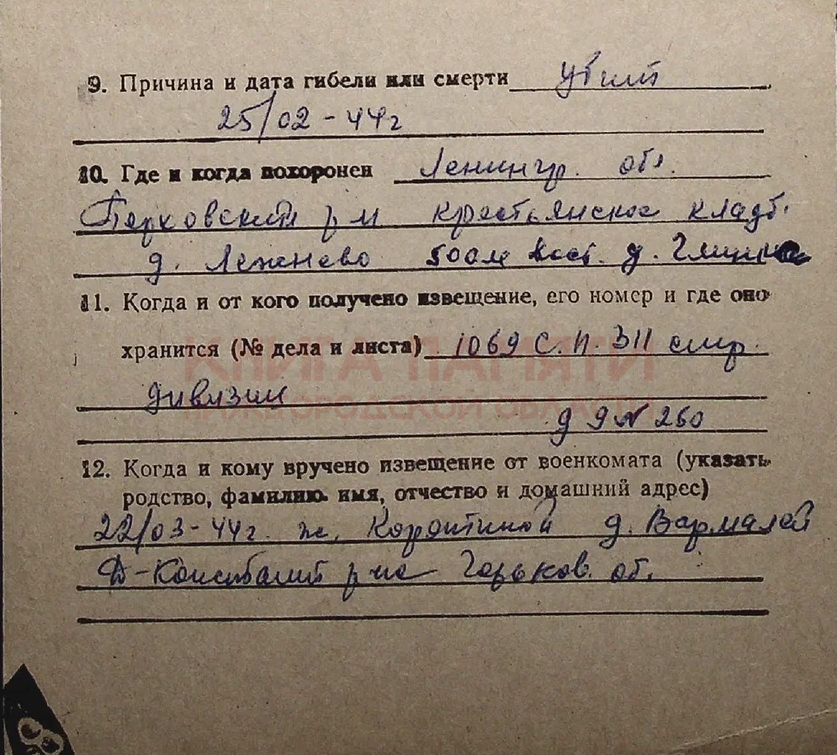 9. Причина и дата гибели или смерти убит
25/02-44г
10. Где и когда похоронен Ленингр. обл.
Порховский р-н крестьянское кладб.
д. Леженево 500м вост. д.
11. Когда и от кого получено извещение, его номер и где оно
хранится (№ дела и листа) 1069 с.п. 311 стр.
дивизии
КНИГА ПАМЯТИ
НИЖЕГОРОДСКОЙ ОБЛАСТИ
д 9 № 260
12. Когда и кому вручено извещение от военкомата (указать
родство, фамилию, имя, отчество и домашний адрес)
22/03-44г. ж. д. Вармалей
Д-Констант р-на Горьков. об.